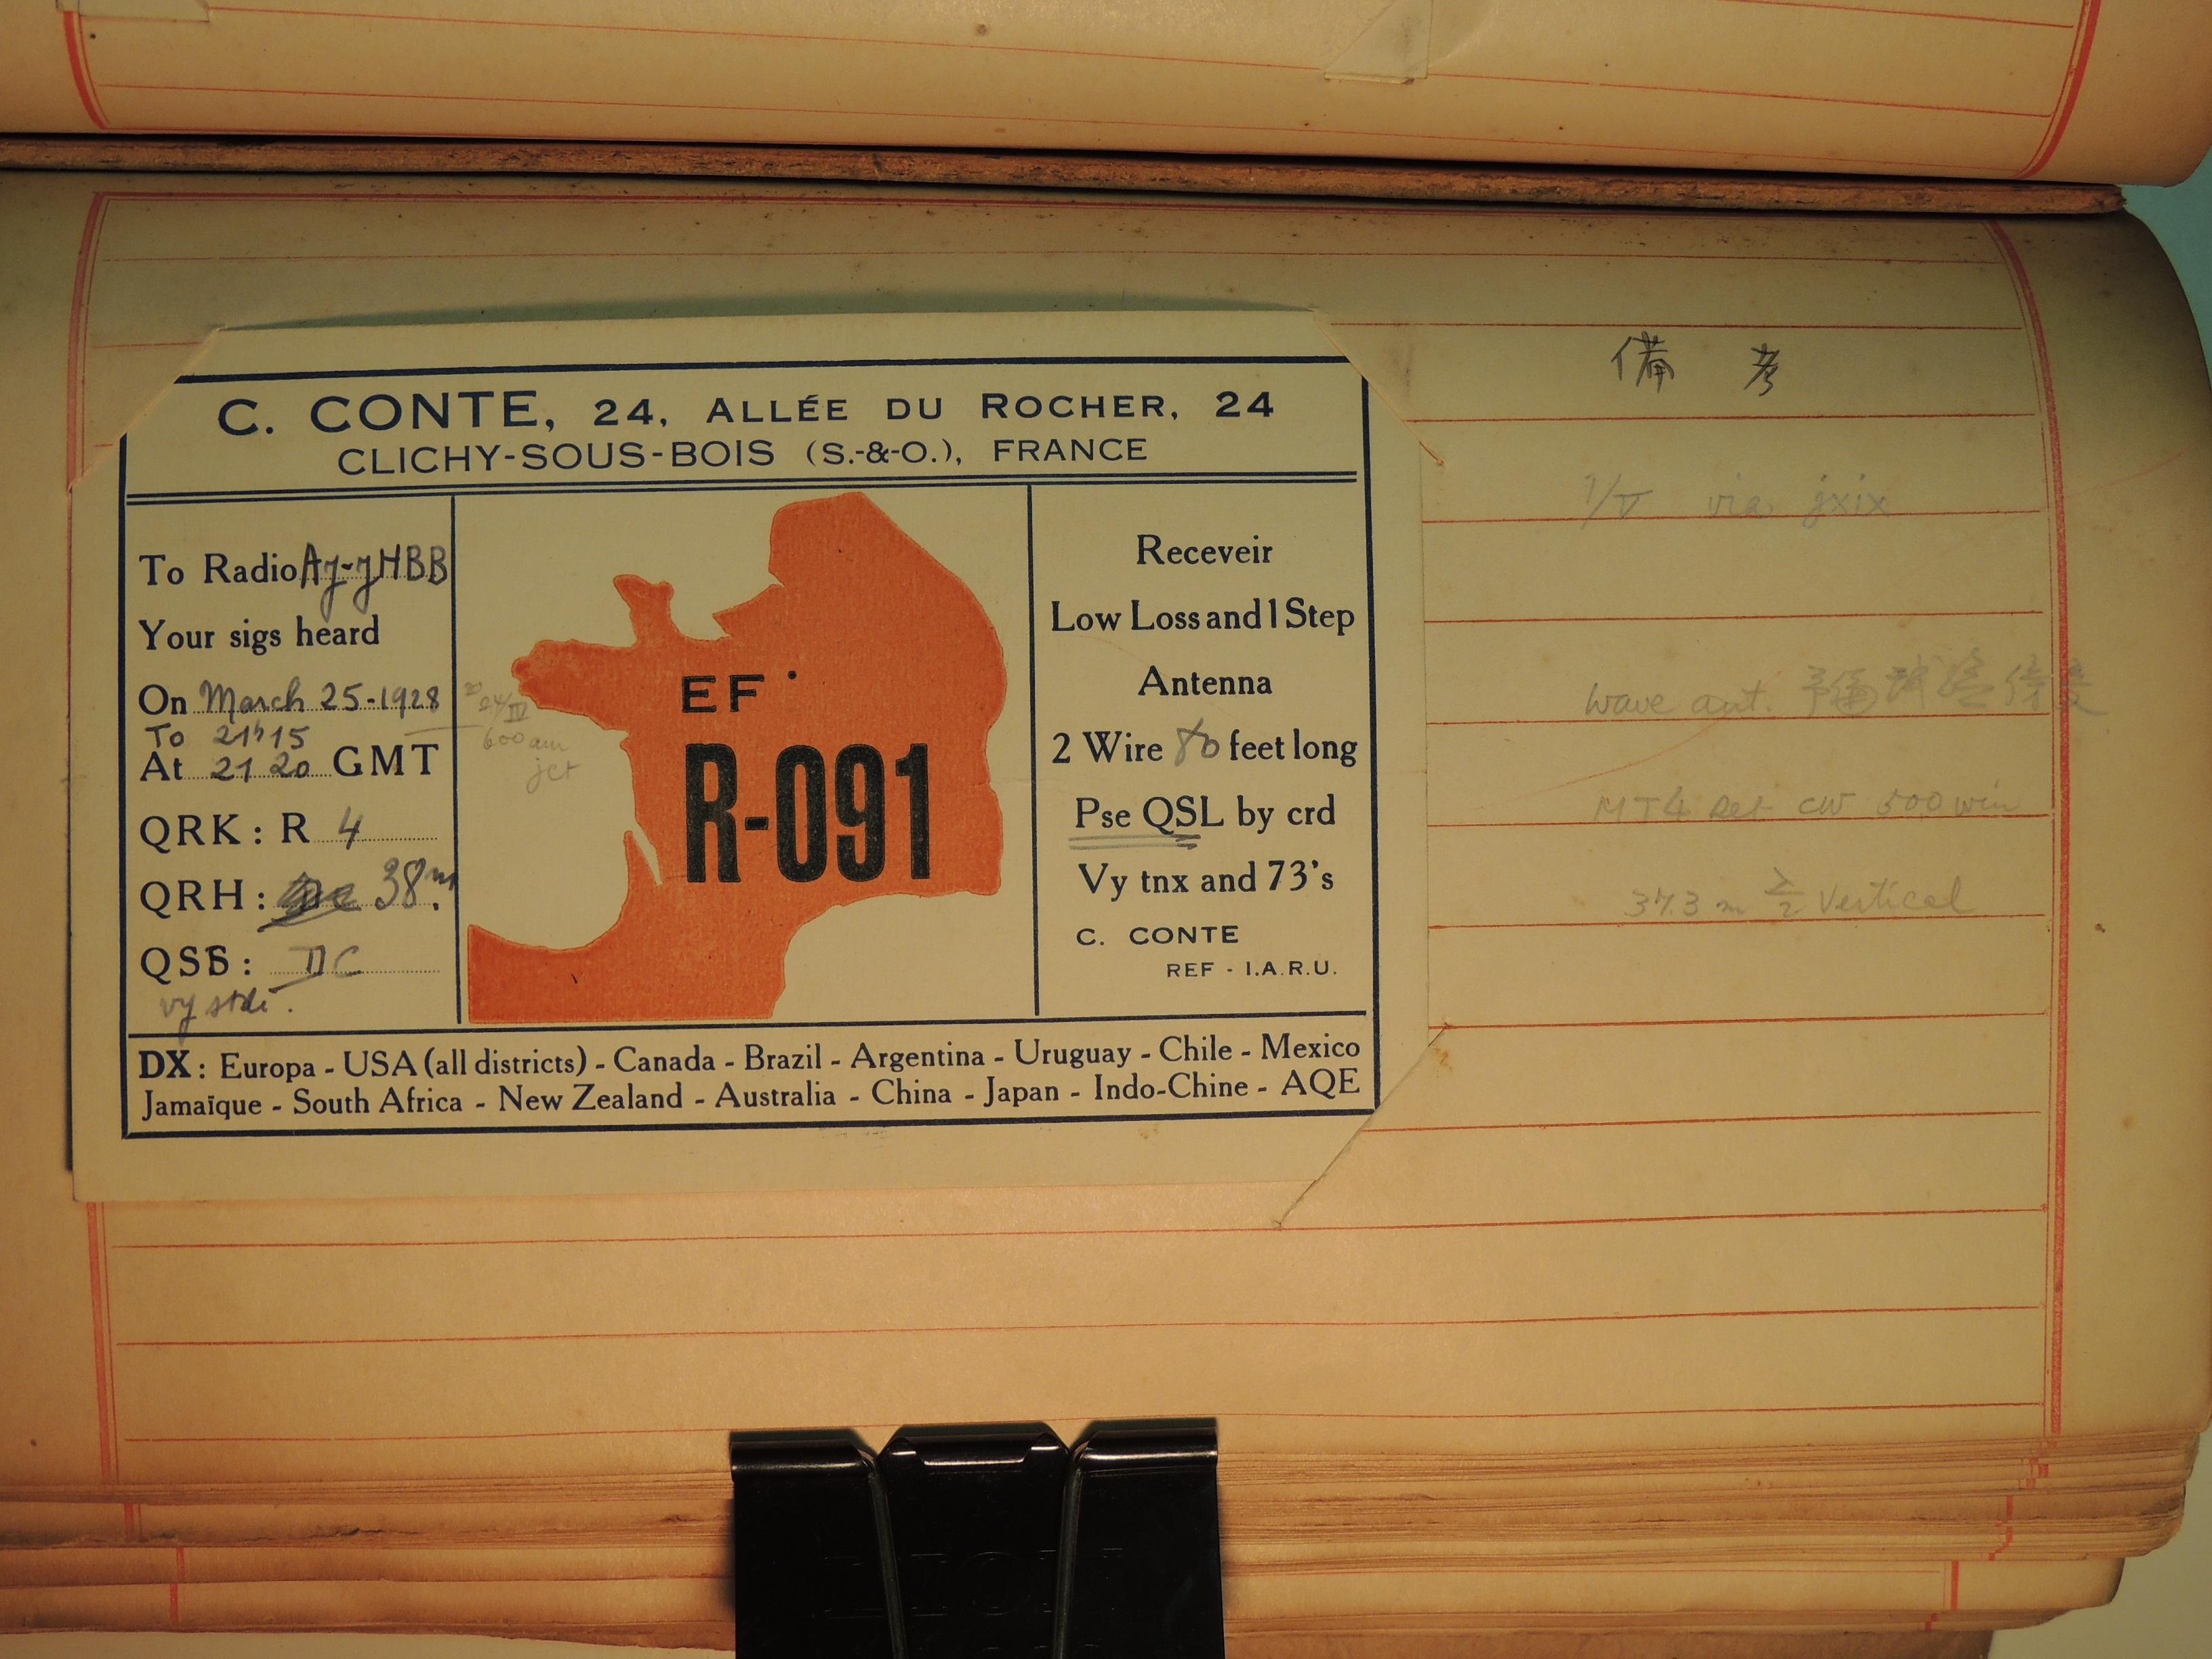 C. CONTE, 24, ALLÉE DU ROCHER, 24
CLICHY-SOUS-BOIS (S.-&-O.), FRANCE
To Radio Aj-jHBB
Your sigs heard
On March 25-1928
To 21h15
At 21 20 GMT
QRK: R 4
QRH: 38m.
QSB: DC
vy
24/III
600 am
jct
EF
R-091
Receveir
Low Loss and 1 Step
Antenna
2 Wire 80 feet long
Pse QSL by crd
Vy tnx and 73's
C. CONTE
REF - I.A.R.U.
DX: Europa - USA (all districts) - Canada - Brazil - Argentina - Uruguay - Chile - Mexico
Jamaïque - South Africa - New Zealand - Australia - China - Japan - Indo-Chine - AQE
備考
1/V via jxix
wave ant.
MT4 CW 500
37.3 m λ/2 Vertical